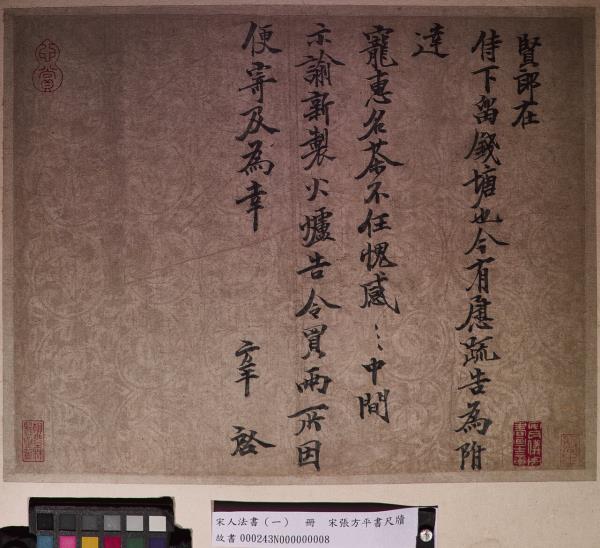 賢郎在
侍下留錢塘也今有慰疏告為附
達
寵惠名茶不任愧感〻中間
示諭新製火爐告令買兩所因
便寄及為幸
啓
宋人法書（一） 冊 宋張方平書尺牘
故書 000243N000000008